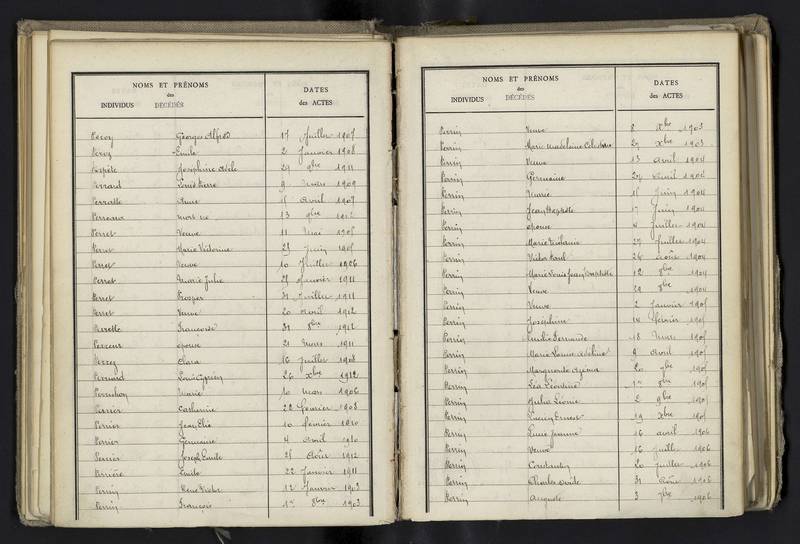 NOMS ET PRÉNOMS
des
INDIVIDUS DÉCÉDÉS
DATES
des ACTES
Peroz Georges Alfred 17 Juillet 1907
Peroz Emile 2 Janvier 1908
Joséphine Adèle 29 9bre 1911
Perrard Louis Pierre 9 Mars 1909
Anne 15 Avril 1907
Perreaux mort né 13 9bre 1912
Perret Veuve 11 Mai 1905
Perret Marie Victorine 25 Juin 1905
Perret Veuve 10 Juillet 1906
Perret Marie Julie 25 Janvier 1911
Perret Prosper 31 Juillet 1911
Perret Veuve 20 Avril 1912
Perrette Françoise 31 8bre 1912
Perreur épouse 21 Mars 1911
Perrey Clara 16 Juillet 1908
Perriard Louis Cyprien 26 Xbre 1912
Perrichon Marie 10 Mars 1906
Perrier Catherine 22 Février 1903
Perrier Jean Elie 10 Février 1910
Perrier Germaine 4 Avril 1910
Perrier Joseph Emile 25 Août 1912
Perrière Emile 22 Janvier 1911
Perrin René Victor 12 Janvier 1903
Perrin François 1er 8bre 1903
NOMS ET PRÉNOMS
des
INDIVIDUS DÉCÉDÉS
DATES
des ACTES
Perrin Veuve 8 Xbre 1903
Perrin Marie Madeleine Célestine 29 Xbre 1903
Perrin Veuve 13 Avril 1904
Perrin Germaine 29 Avril 1904
Perrin Marie 15 Juin 1904
Perrin Jean Baptiste 17 Juin 1904
Perrin épouse 4 Juillet 1904
Perrin Marie Stéphanie 27 Juillet 1904
Perrin Victor Paul 26 Août 1904
Perrin Marie Louis Jean Baptiste 12 8bre 1904
Perrin Veuve 29 8bre 1904
Perrin Veuve 2 Janvier 1905
Perrin Joséphine 14 Février 1905
Perrin Emilie Fernande 18 Mars 1905
Perrin Marie Louise Adeline 9 Avril 1905
Perrin Marguerite 20 7bre 1905
Perrin Léa Léontine 1er 8bre 1905
Perrin Julia Léonie 2 9bre 1905
Perrin Lucien Ernest 19 Xbre 1905
Perrin Lucie Jeanne 16 avril 1906
Perrin Veuve 16 Juillet 1906
Perrin Constantin 20 Juillet 1906
Perrin Charles Ovide 31 Août 1906
Perrin Auguste 3 7bre 1906